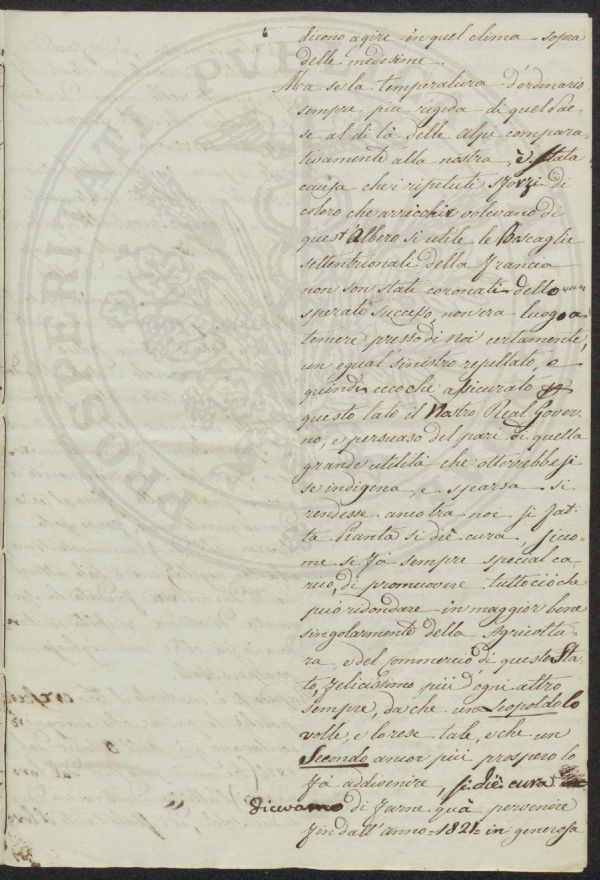 dicono agire in quel clima sopra
delle medesime.
Ma se la temperatura d'ordinario
sempre più rigida di quel Pae-
se al di là delle Alpi compara-
tivamente alla nostra, è stata
causa che i ripetuti sforzi di
coloro che arricchir volevano di
quest'Albero si utile le Boscaglie
settentrionali della Francia
non son stati coronati dello
sperato successo, non era luogo a
temere presso di noi certamente,
un egual sinistro resultato, e
quindi ecco che assicurato
questo lato il Nostro Real Gover-
no, e persuaso del pari di quella
grande utilità che otterrebbesi
se indigena, e sparsa si
rendesse ancor tra noi si fat-
ta Pianta si diè cura, sico-
me si fà sempre special ca-
rico, di promuovere tutto ciò che
può ridondare in maggior bene
singolarmente della Agricoltu-
ra, e del Commercio di questo Sta-
to, felicissimo più d'ogni altro
sempre, da che un Leopoldo lo
volle, e lo rese tale, e che un
Secondo ancor più prospero lo
fà addivenire, si diè cura
dicevamo di farne quà pervenire
fin dall'anno =1821= in generosa
PROSPERITATI PUBLICAE